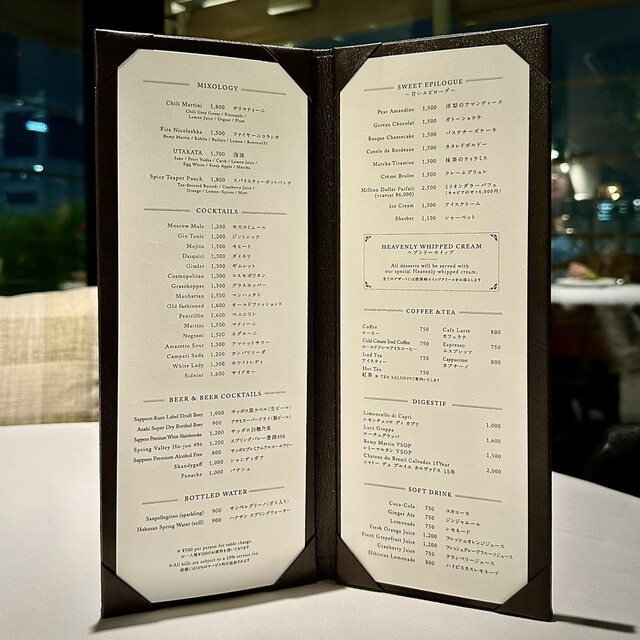 MIXOLOGY
Chili Martini 1,800 チリマティーニ
Chili Grey Goose / Pineapple /
Lemon Juice / Orgeat / Plum
Fire Nicolashka 1,500 ファイヤーニコラシカ
Remy Martin / Kahlúa / Baileys / Lemon / Ronrico151
UTAKATA 1,700 泡沫
Sake / Poire Vodka / Lemon Juice /
Egg White / Fresh Apple / Matcha
Spice Teapot Punch 1,800 スパイスティーポットパンチ
Tea-flavored Bacardi / Cranberry Juice /
Orange / Lemon / Spice / Mint
COCKTAILS
Moscow Mule 1,200 モスコミュール
Gin Tonic 1,200 ジントニック
Mojito 1,500 モヒート
Daiquiri 1,300 ダイキリ
Gimlet 1,300 ギムレット
Cosmopolitan 1,300 コスモポリタン
Grasshopper 1,500 グラスホッパー
Manhattan 1,500 マンハッタン
Old fashioned 1,600 オールドファッションド
Penicillin 1,600 ペニシリン
Martini 1,500 マティーニ
Negroni 1,500 ネグローニ
Amaretto Sour 1,300 アマレットサワー
Campari Soda 1,200 カンパリソーダ
White Lady 1,300 ホワイトレディ
Sidecar 1,600 サイドカー
BEER & BEER COCKTAILS
Sapporo Kuro Label Draft Beer 1,000 サッポロ黒ラベル(生ビール)
Asahi Super Dry Bottled Beer 900 アサヒスーパードライ(瓶ビール)
Sapporo Premium White Shirohonoka 1,200 サッポロ白穂乃果
Spring Valley Ho-jun 496 1,200 スプリングバレー豊潤496
Sapporo Premium Alcohol Free 800 サッポロプレミアムアルコールフリー
Shandygaff 1,000 シャンディガフ
Panache 1,000 パナシェ
BOTTLED WATER
Sanpellegrino (sparkling) 900 サンペレグリーノ(ガス入り)
Hakusan Spring Water (still) 900 ハクサン スプリングウォーター
※ ¥500 per person for table charge.
お一人様¥500のお席料を頂いております
※All bills are subject to a 10% service fee.
別途に10%のサービス料が加算されます
SWEET EPILOGUE
～甘いエピローグ～
Pear Amandine 1,500 洋梨のアマンディーヌ
Gateau Chocolat 1,500 ガトーショコラ
Basque Cheesecake 1,500 バスクチーズケーキ
Canele de Bordeaux 1,500 カヌレドボルドー
Matcha Tiramisu 1,500 抹茶のティラミス
Crème Brulee 1,500 クレームブリュレ
Million Dollar Parfait 2,500 ミリオンダラーパフェ
(+caviar ¥6,000) (キャビアのせ+6,000円)
Ice Cream 1,500 アイスクリーム
Sherbet 1,500 シャーベット
HEAVENLY WHIPPED CREAM
ヘブンリーホイップ
All desserts will be served with
our special Heavenly whipped cream.
COFFEE &TEA
Coffee 750
コーヒー
Cold Cream Iced Coffee 750
コールドクレマアイスコーヒー
Iced Tea 750
アイスティー
Hot Tea 750
紅茶 ※ TEA SALONよりご案内いたします
Cafe Latte 800
カフェラテ
Espresso 750
エスプレッソ
Cappuccino 800
カプチーノ
DIGESTIF
Limoncello di Capri 1,000
レモンチェッロ ディ カプリ
Luce Grappa 1,600
ルーチェグラッパ
Remy Martin VSOP 1,500
レミーマルタン VSOP
Chateau du Breuil Calvados 15Year 2,000
シャトー デュ ブルイユ カルヴァドス 15年
SOFT DRINK
Coca-Cola 750 コカコーラ
Ginger Ale 750 ジンジャエール
Lemonade 750 レモネード
Fresh Orange Juice 1,200 フレッシュオレンジジュース
Fresh Grapefruit Juice 1,200 フレッシュグレープフルーツジュース
Cranberry Juice 750 クランベリージュース
Hibiscus Lemonade 800 ハイビスカスレモネード